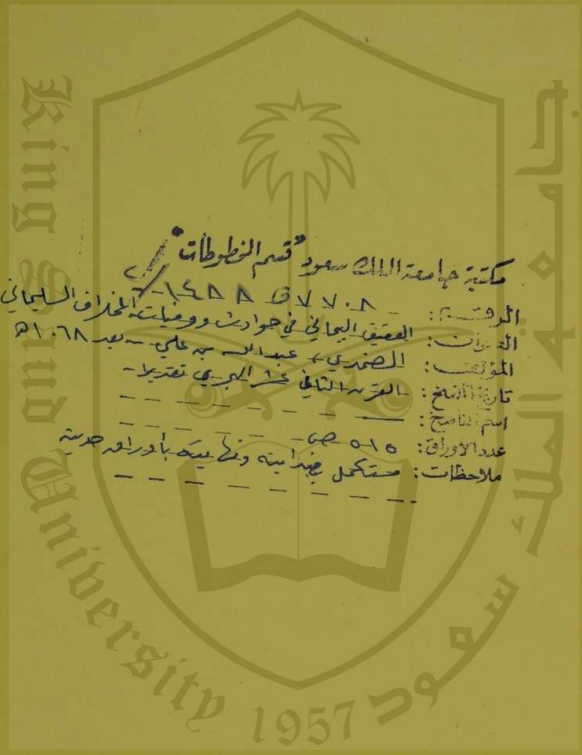 مكتبة جامعة الملك سعود "قسم المخطوطات"
الرقم: ٥٧٧٠٨
العنوان: العقيق اليماني في حوادث ووفيات المخلاف السليماني
المؤلف: الضمدي، عبدالله بن علي -- بعد ١٠٦٨هـ
تاريخ النسخ: القرن الثاني عشر الهجري تقديرا
اسم الناسخ:
عدد الاوراق: ٥١٥ ص
ملاحظات: مستكمل بدايته ونهايته بأوراق حديثة
King Saud University 1957 جامعة الملك سعود